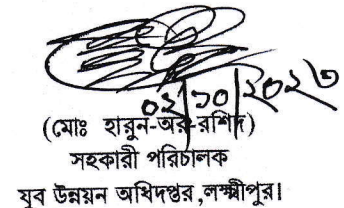 ০২/১০/২০২৩
(মোঃ হারুন-অর-রশিদ)
সহকারী পরিচালক
যুব উন্নয়ন অধিদপ্তর,লক্ষ্মীপুর।